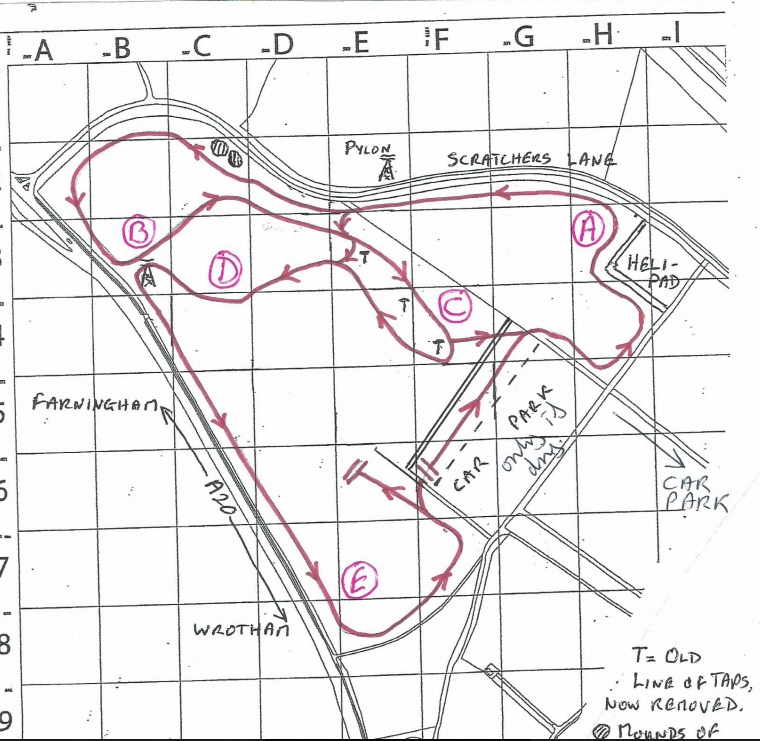 A B C D E F G H I
PYLON
SCRATCHERS LANE
A
B
HELI-
PAD
D
T
T
C
T
4
FARNINGHAM
PARK
only if
dry.
CAR
CAR
PARK
6
A20
7
E
WROTHAM
8
T = OLD
LINE OF TAPS,
NOW REMOVED.
9
MOUNDS OF